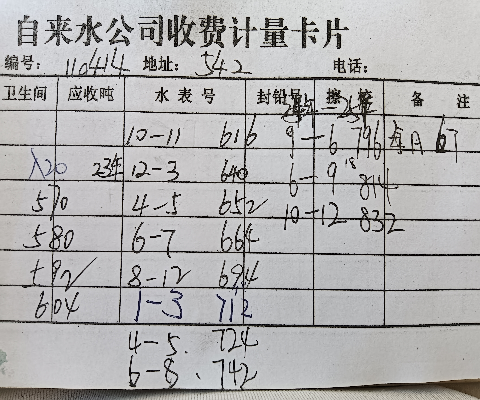 自来水公司收费计量卡片
编号: 110414 地址: 542 电话:
卫生间 应收吨 水表号 封铅号 备注
10-11 616 9-6 796 每月 6T
23年 12-3 640 6-9 814
570 4-5 652 10-12 832
580 6-7 664
8-12 694
604 1-3 712
4-5 724
6-8 742